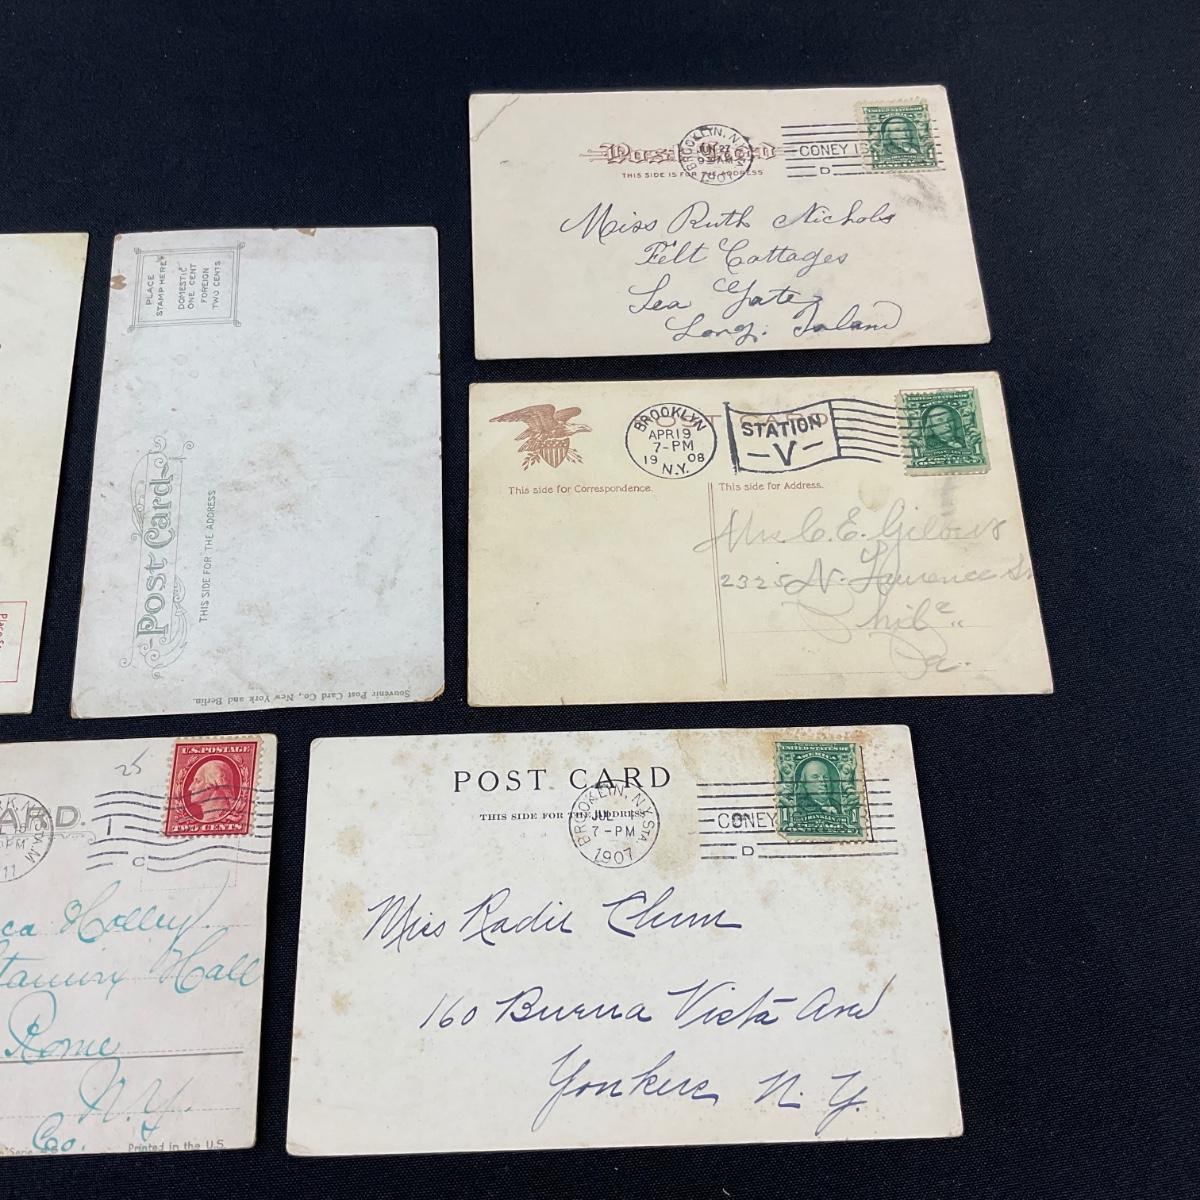 Post Card
THIS SIDE IS FOR THE ADDRESS
BROOKLYN, N.Y.
1907
CONEY IS
D
Miss Ruth Nichols
Felt Cottages
Sea Gate
Long Island
PLACE
STAMP HERE
DOMESTIC
ONE CENT
FOREIGN
TWO CENTS
Post Card
THIS SIDE FOR THE ADDRESS
Souvenir Post Card Co., New York and Berlin.
POST CARD
BROOKLYN
APR 19
7-PM
19 08
N.Y.
STATION
-V-
This side for Correspondence.
This side for Address.
Mrs. C. E.
2325 N.
Phila
Pa.
Place
ARD.
25
U.S. POSTAGE
TWO CENTS
11
C
ca Holley
Hall
Rome
N.Y.
Co.
Printed in the U.S.
POST CARD
THIS SIDE FOR THE ADDRESS
BROOKLYN, N.Y. STA
JUL
7-PM
1907
CONEY
D
UNITED STATES OF
AMERICA
Miss
160 Buena Vista Ave
Yonkers N. Y.